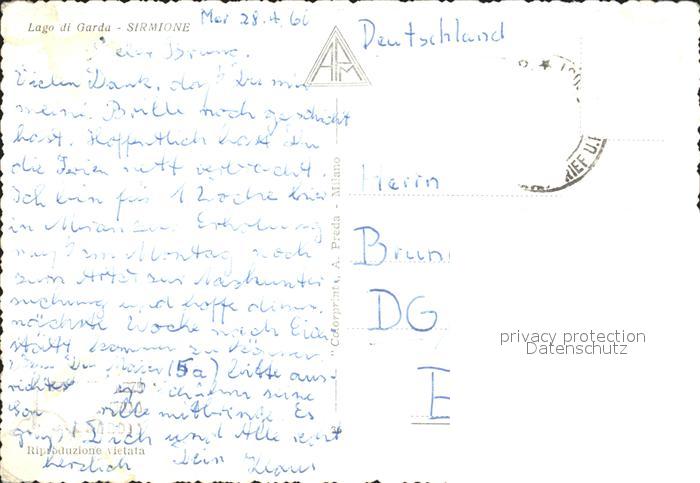 Lago di Garda - SIRMIONE
28.4.60
Deutschland
Lieber Bruno.
Vielen Dank, daß Du mir
meine Brille noch geschickt
hast. Hoffentlich hast Du
die Ferien nett verbracht.
Ich bin für 1 Woche hier
in Meran zur Erholung
muß am Montag noch
zum Arzt zur Nachunter
suchung und hoffe dann
nächste Woche nach
kommen zu können.
(5a) bitte aus-
richten
mitbringe. Es
grüßt Dich und Alle recht
herzlich Dein Klaus
Riproduzione vietata
"Colorprint" A. Preda - Milano
APM
Herrn
Brun
DG
E
privacy protection
Datenschutz